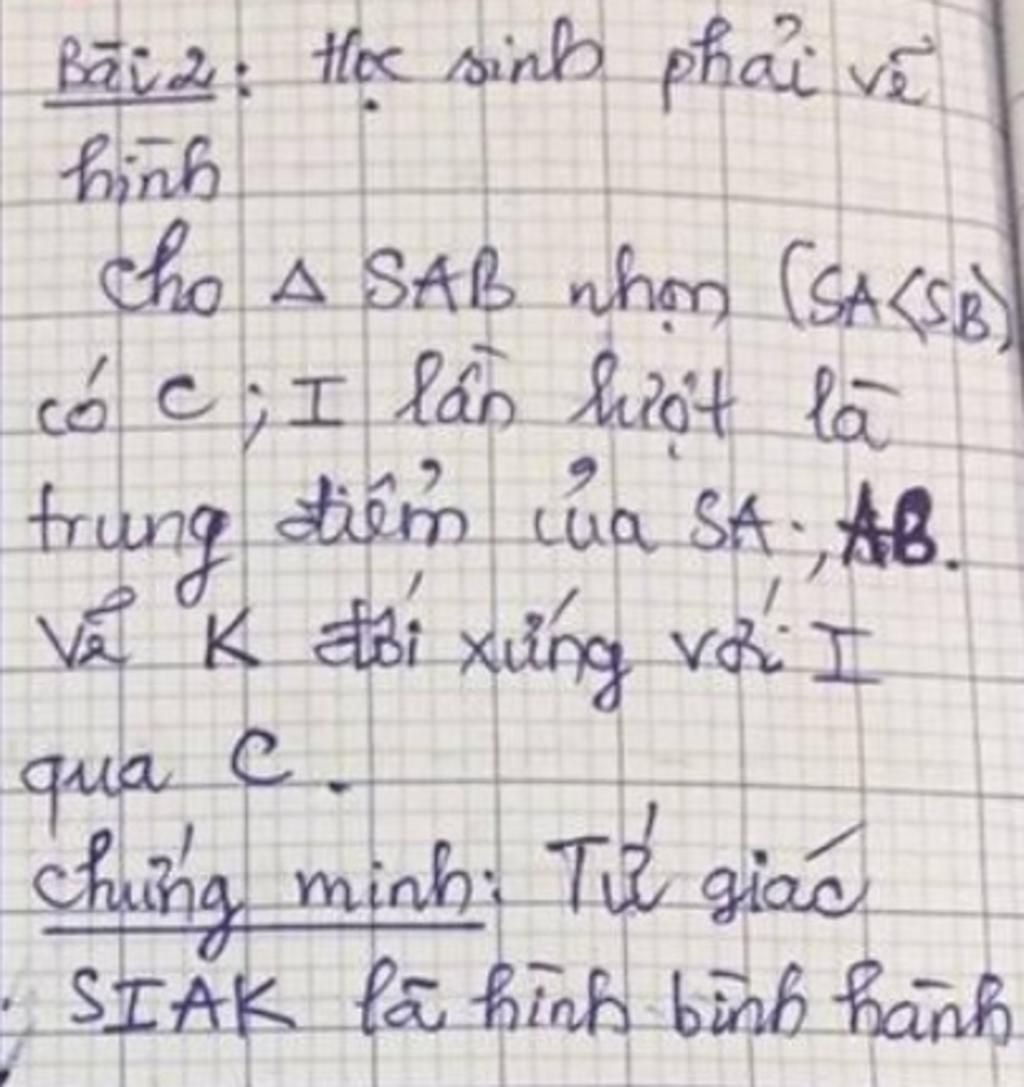 Bài 2: Học sinh phải vẽ
hình
Cho Δ SAB nhọn (SA<SB)
có C; I lần lượt là
trung điểm của SA; AB.
Vẽ K đối xứng với I
qua C.
Chứng minh: Tứ giác
SIAK là hình bình hành